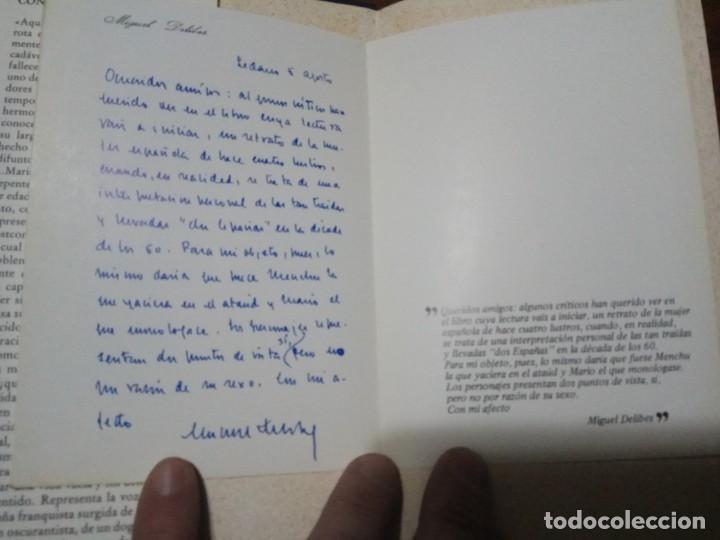 Miguel Delibes
Sedano 5 agosto
Queridos amigos: algunos críticos han
querido ver en el libro cuya lectura
vais a iniciar, un retrato de la mu-
jer española de hace cuatro lustros,
cuando, en realidad, se trata de una
interpretación personal de las tan traidas
y llevadas "dos Españas" en la década
de los 60. Para mi objeto, pues, lo
mismo daria que fuese Menchu la
que yaciera en el ataud y Mario el
que monologase. Los personajes repre-
sentan dos puntos de vista, sí, pero no
por razón de su sexo. Con mi a-
fecto
Miguel Delibes
"Queridos amigos: algunos críticos han querido ver en
el libro cuya lectura vais a iniciar, un retrato de la mujer
española de hace cuatro lustros, cuando, en realidad,
se trata de una interpretación personal de las tan traidas
y llevadas "dos Españas" en la década de los 60.
Para mi objeto, puez, lo mismo daría que fuese Menchu
la que yaciera en el ataúd y Mario el que monologase.
Los personajes presentan dos puntos de vista, sí,
pero no por razón de su sexo.
Con mi afecto
Miguel Delibes"
CON
«Aqu
rota e
mente
cadáve
fallece
uno de
dores
tempo
hermo
conoce
su larg
hecho
difunto
..Mario
repente
e edad
to, co
represen
ostcon
cual
oblem
entido. Representa la voz
ña franquista surgida de
n oscurantista, de un dog
todocoleccion
todocoleccion.net